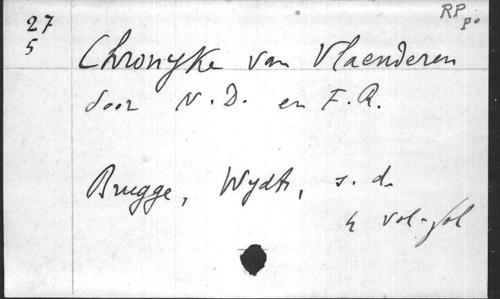 27
5
RP
po
Chronyke van Vlaenderen
door N.D. en F.R.
Brugge, Wydts, s.d.
4 vol. fol